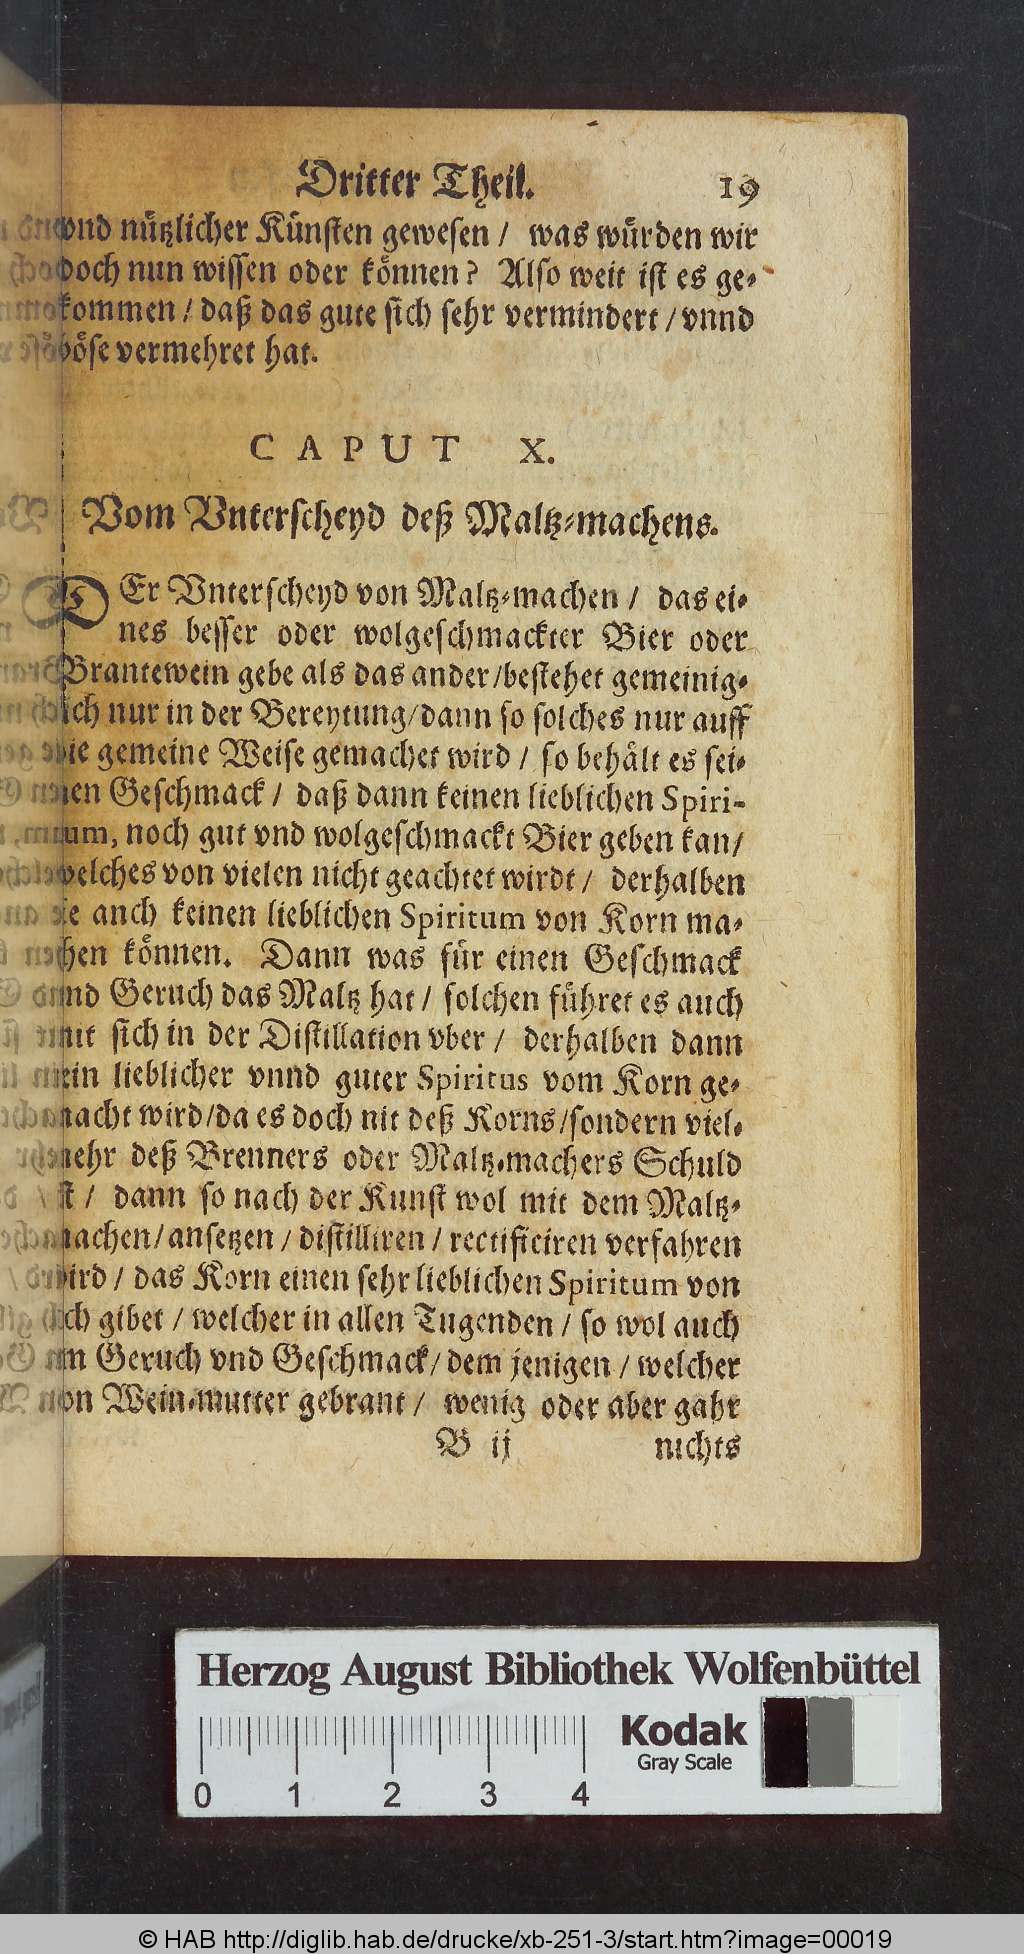 Dritter Theil. 19
vnd nützlicher Künsten gewesen / was würden wir
doch nun wissen oder können? Also weit ist es ge-
kommen / daß das gute sich sehr vermindert / vnnd
böse vermehret hat.
CAPUT X.
Vom Vnterscheyd deß Maltz-machens.
DEr Vnterscheyd von Maltz-machen / das ei-
nes besser oder wolgeschmackter Bier oder
Brantewein gebe als das ander / bestehet gemeinig-
lich nur in der Bereytung / dann so solches nur auff
die gemeine Weise gemachet wird / so behält es sei-
nen Geschmack / daß dann keinen lieblichen Spiri-
tum, noch gut vnd wolgeschmackt Bier geben kan /
welches von vielen nicht geachtet wirdt / derhalben
sie anch keinen lieblichen Spiritum von Korn ma-
chen können. Dann was für einen Geschmack
vnnd Geruch das Maltz hat / solchen führet es auch
mit sich in der Distillation vber / derhalben dann
kein lieblicher vnnd guter Spiritus vom Korn ge-
macht wird / da es doch nit deß Korns / sondern viel-
mehr deß Brenners oder Maltz-machers Schuld
ist / dann so nach der Kunst wol mit dem Maltz-
machen / ansetzen / distilliren / rectificiren verfahren
wird / das Korn einen sehr lieblichen Spiritum von
sich gibet / welcher in allen Tugenden / so wol auch
im Geruch vnd Geschmack / dem jenigen / welcher
von Wein-mutter gebrant / wenig oder aber gahr
B ij nichts
Herzog August Bibliothek Wolfenbüttel
Kodak
Gray Scale
0 1 2 3 4
© HAB http://diglib.hab.de/drucke/xb-251-3/start.htm?image=00019